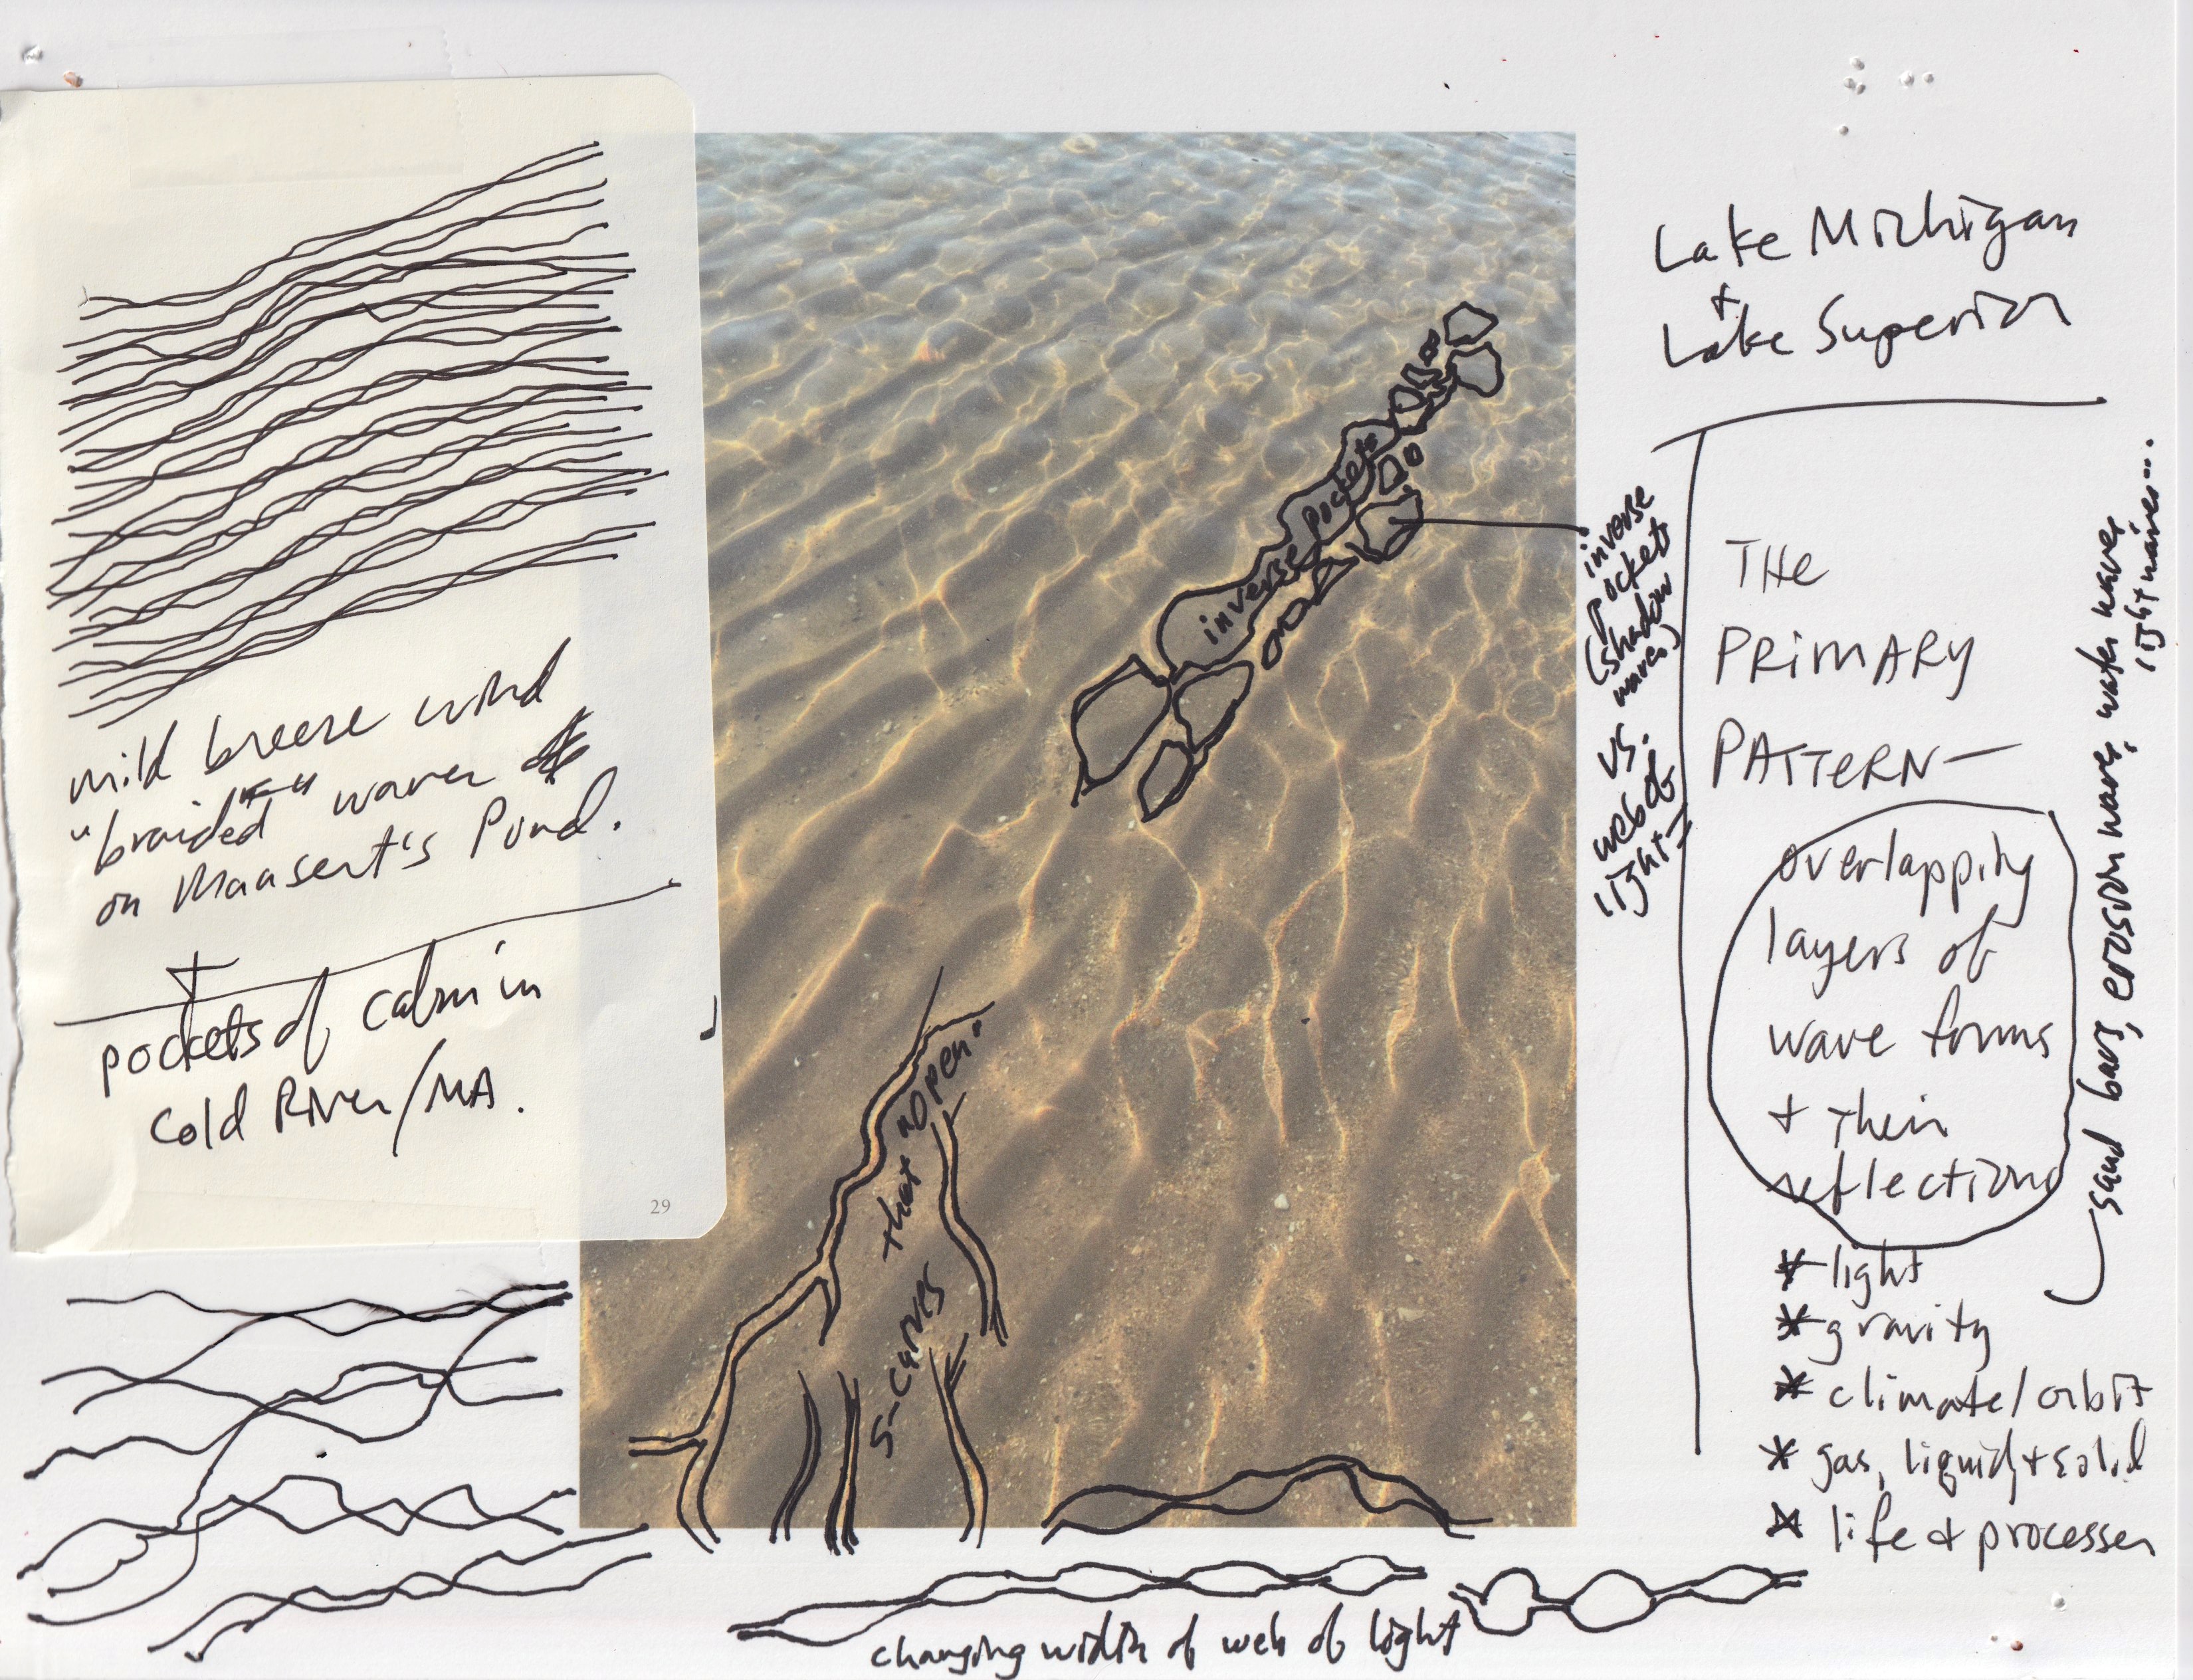 mild breeze wind
"braided" waves
on Maasert's Pond.
+
pockets of calm in
Cold River/MA.
29
inverse pockets
"open"
that
S-curves
changing width of web of light
inverse
pockets
(shadow
waves)
vs.
web of
light
Lake Michigan
+
Lake Superior
THE
PRIMARY
PATTERN—
overlapping
layers of
wave forms
+ their
reflections
* light
* gravity
* climate/orbit
* gas, liquid, + solid
* life + processes
sand bars, erosion waves, water waves
light waves....